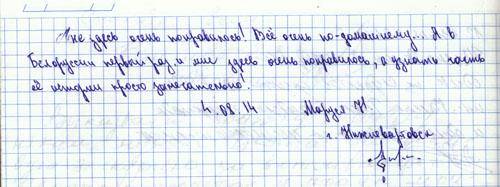 Мне здесь очень понравилось! Всё очень по-домашнему... Я в
Белоруссии первый раз и мне здесь очень понравилось, а узнать часть
её истории просто замечательно!
4.08.14 Маруся Н.
г. Нижневартовск